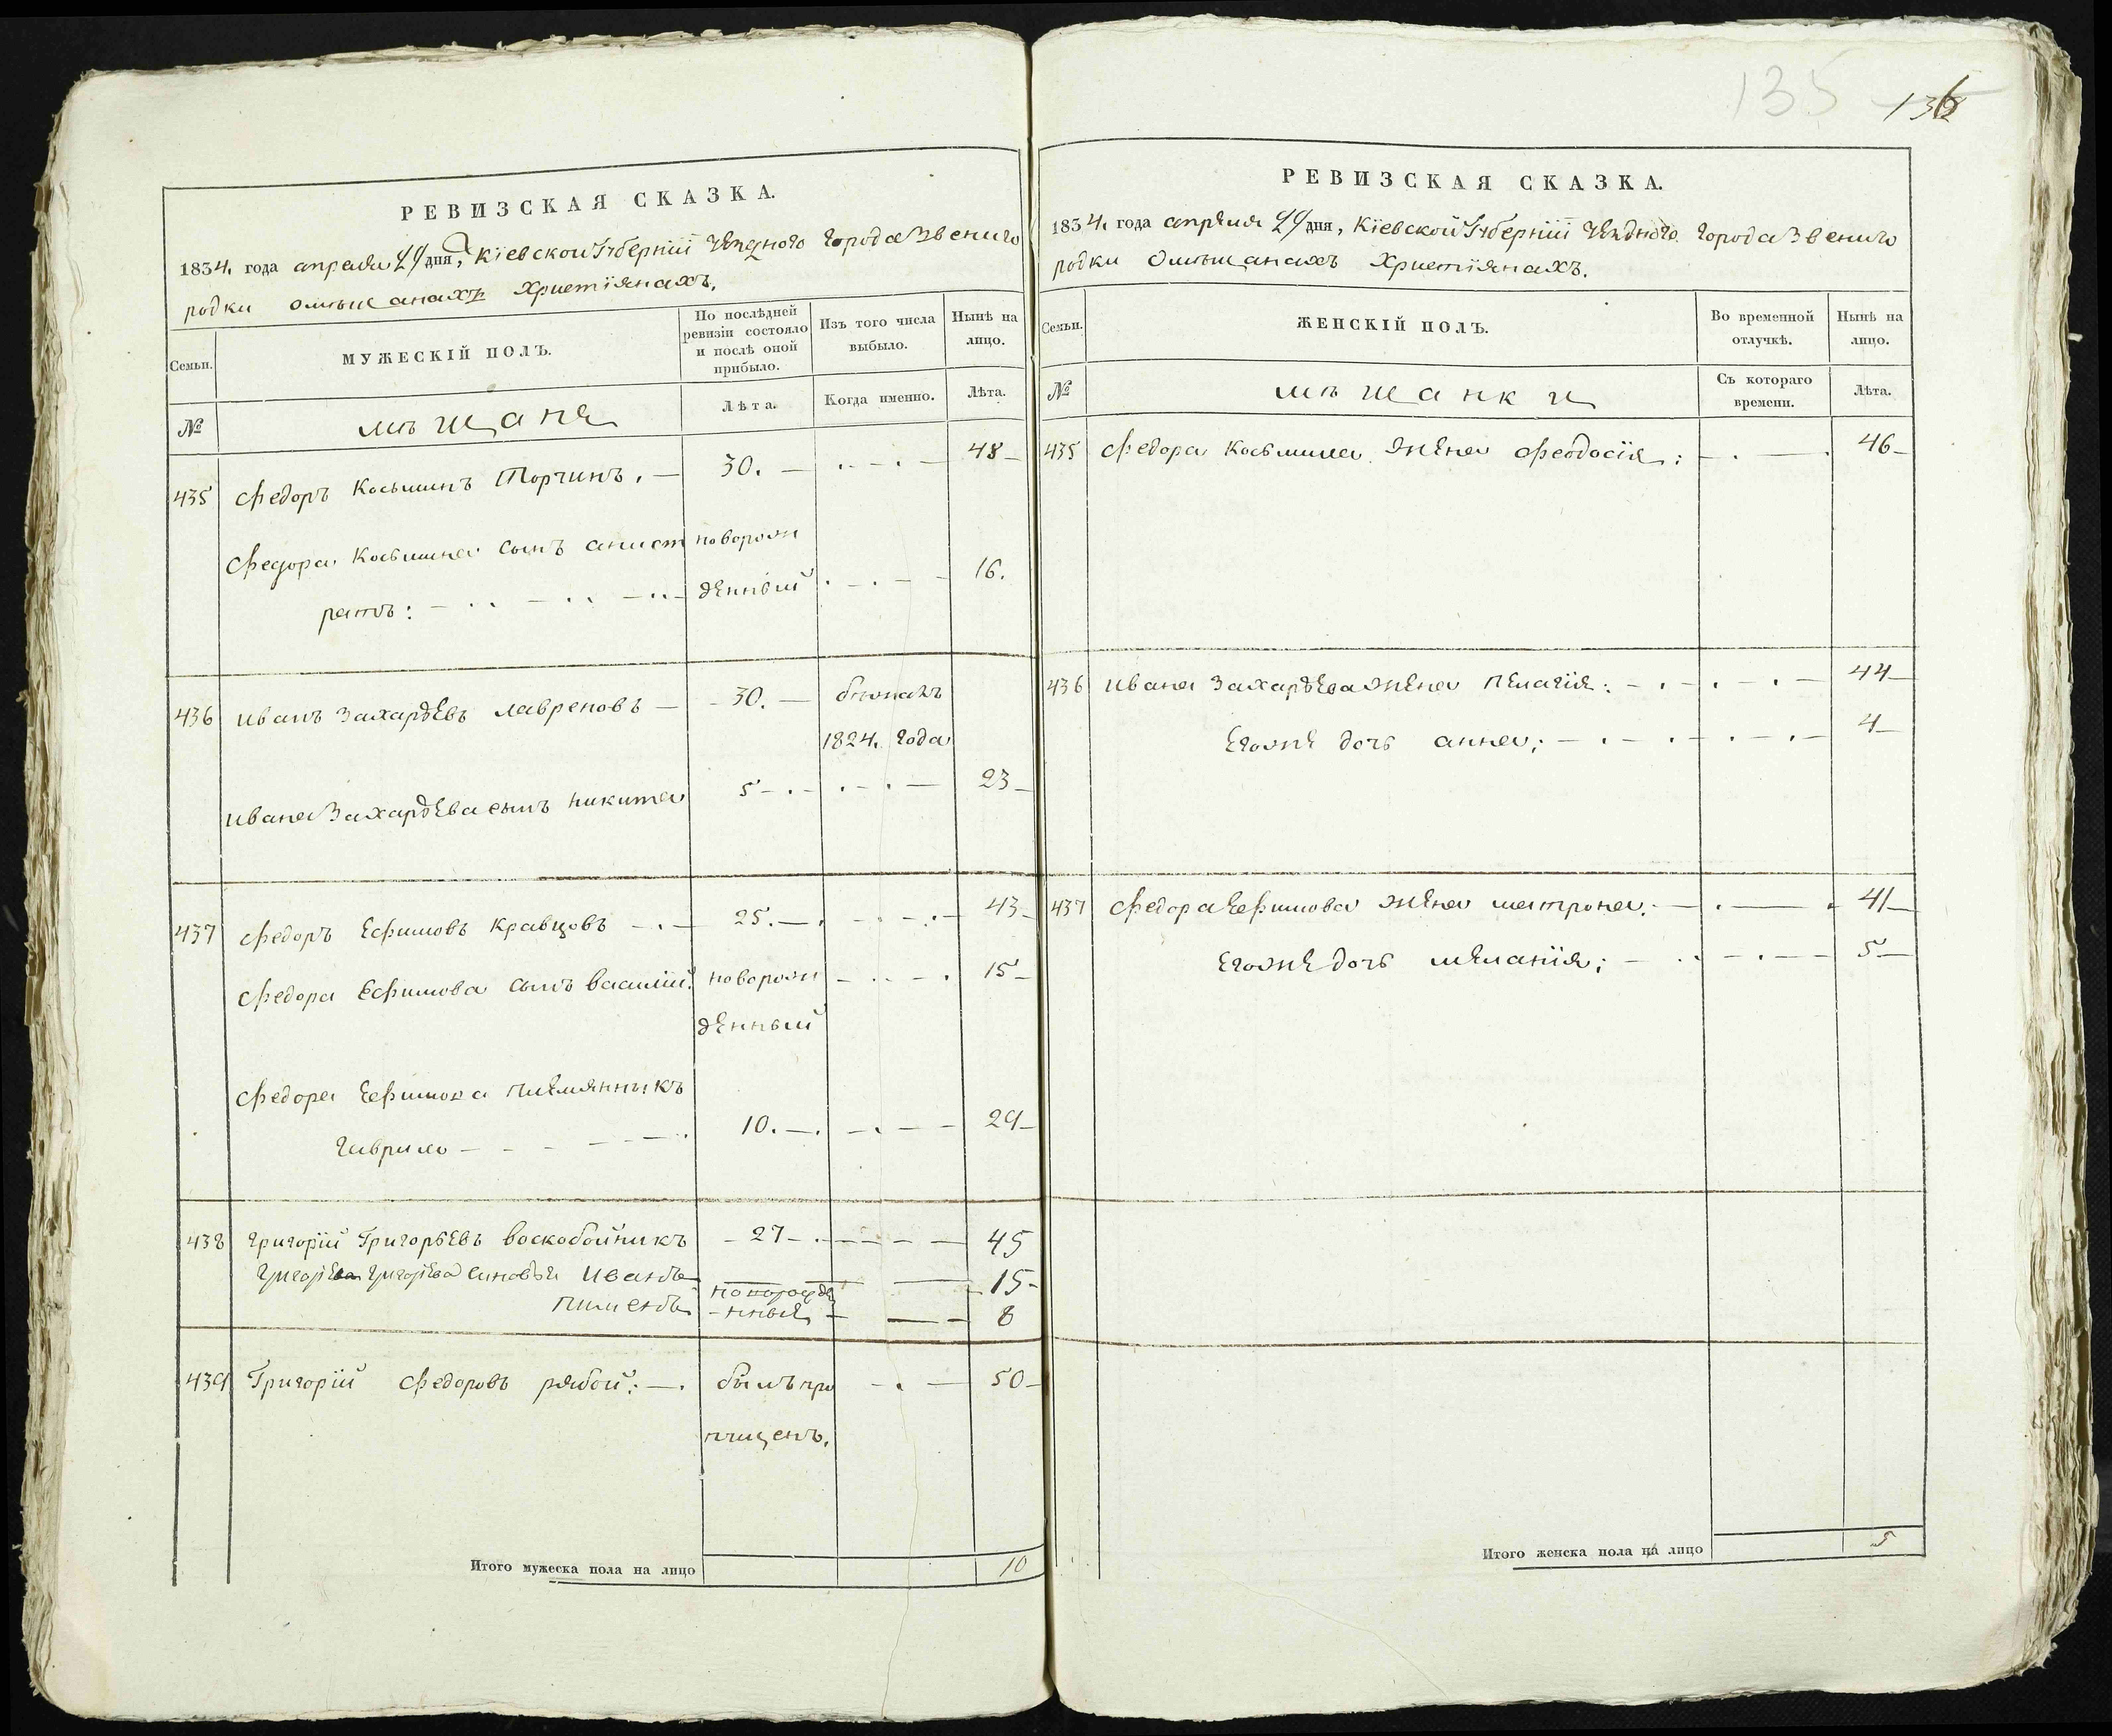 РЕВИЗСКАЯ СКАЗКА.
1834. года апреля 29 дня, Кіевской Губерніи уѣзднаго города Звениго
родки омѣщанахъ Христіянахъ.
Семьи.
МУЖЕСКІЙ ПОЛЪ.
По послѣдней
ревизіи состояло
и послѣ оной
прибыло.
Изъ того числа
выбыло.
Нынѣ на
лицо.
№
мѣщане
Лѣта.
Когда именно.
Лѣта.
435 Федоръ Косьминъ Торчинъ. — 30. — 48
Федора Косьмина сынъ анист новорож
ратъ: денный 16.
436 Иванъ Захарьевъ Лавреновъ — 30. — бѣжалъ
1824. года
Ивана Захарьева сынъ Никита 5 23
437 Федоръ Ефимовъ Кравцовъ 25. — 43
Федора Ефимова сынъ василій: новорож 15
денный
Федора Ефимова племянникъ
Гаврило 10. — 29
438 Григорій Григорьевъ воскобойникъ 27 45
Григорьева сыновья Иванъ 15
новорожде
Пименъ нные 8
439 Григорій Федоровъ рябой: былъ про 50
пущенъ.
Итого мужеска пола на лицо 10
135
136
РЕВИЗСКАЯ СКАЗКА.
1834. года апреля 29 дня, Кіевской Губерніи уѣзднаго города Звениго
родки омѣщанахъ Христіянахъ.
Семьи.
ЖЕНСКІЙ ПОЛЪ.
Во временной
отлучкѣ.
Нынѣ на
лицо.
№
мѣщанки
Съ котораго
времени.
Лѣта.
435 Федора Косьмина жена Феодосія: 46
436 Ивана Захарьева жена пелагія: 44
Егожe дочь анна: 4
437 Федора Ефимова жена матрона: 41
Егоже дочь меланія: 5
Итого женска пола на лицо 5